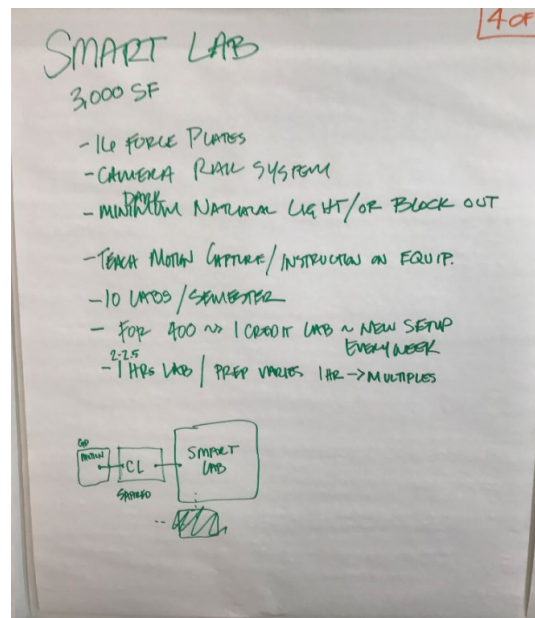 4 OF
SMART LAB
3,000 SF
- 16 FORCE PLATES
- CAMERA RAIL SYSTEM
DARK
- MINIMUM NATURAL LIGHT/OR BLOCK OUT
- TEACH MOTION CAPTURE/INSTRUCTION ON EQUIP.
- 10 LABS/SEMESTER
- FOR 400 ~> 1 CREDIT LAB ~ NEW SETUP
EVERY WEEK
2-2.5
- 1 HRS LAB / PREP VARIES 1HR -> MULTIPLES
MOTION
CL
SMART
LAB
SHARED